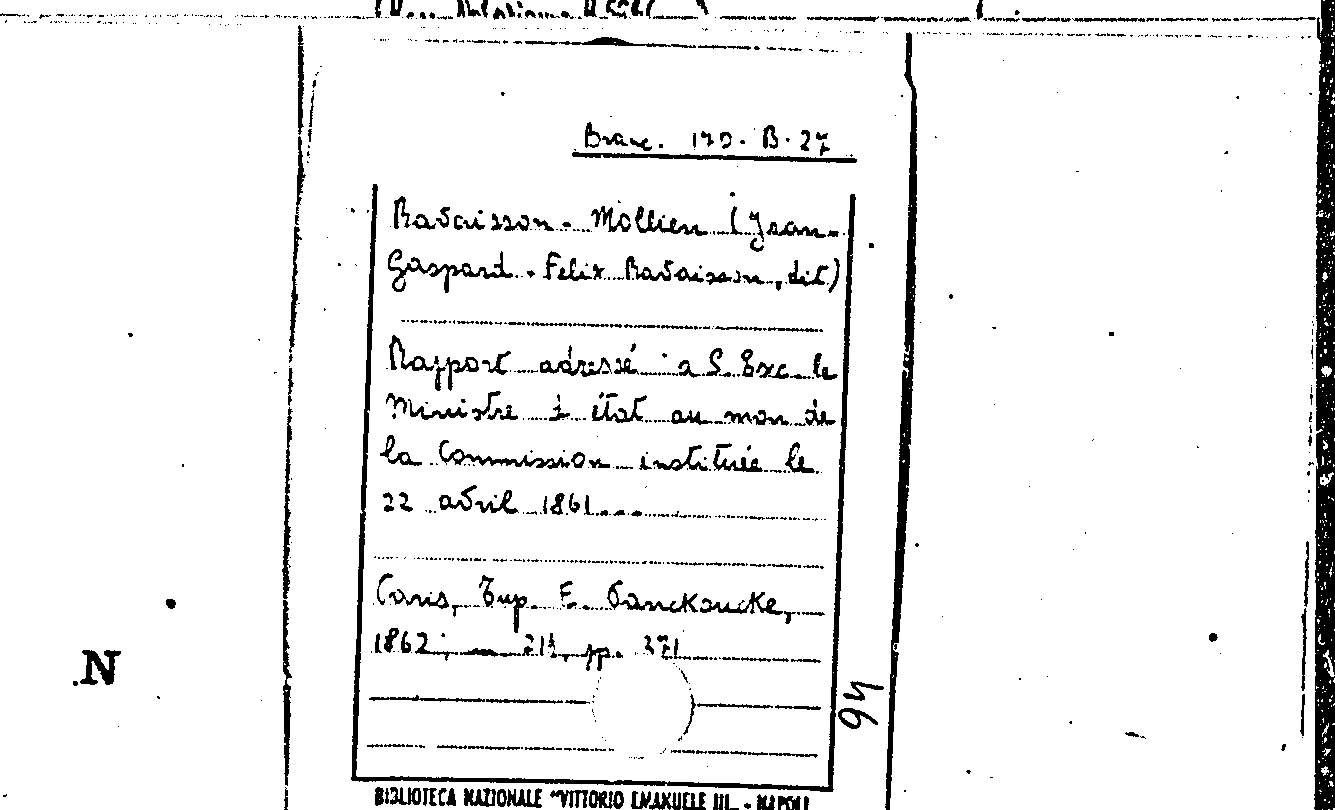 Branc. 179. B. 27
Ravaisson-Mollien (Jean-
Gaspard-Felix Ravaisson, dit)
Rapport adressé à S. Exc. le
Ministre d'état au nom de
la Commission instituée le
22 avril 1861...
Paris, Typ. E. Panckoucke,
1862; pp. 371
94
N
BIBLIOTECA NAZIONALE "VITTORIO EMANUELE III" - NAPOLI